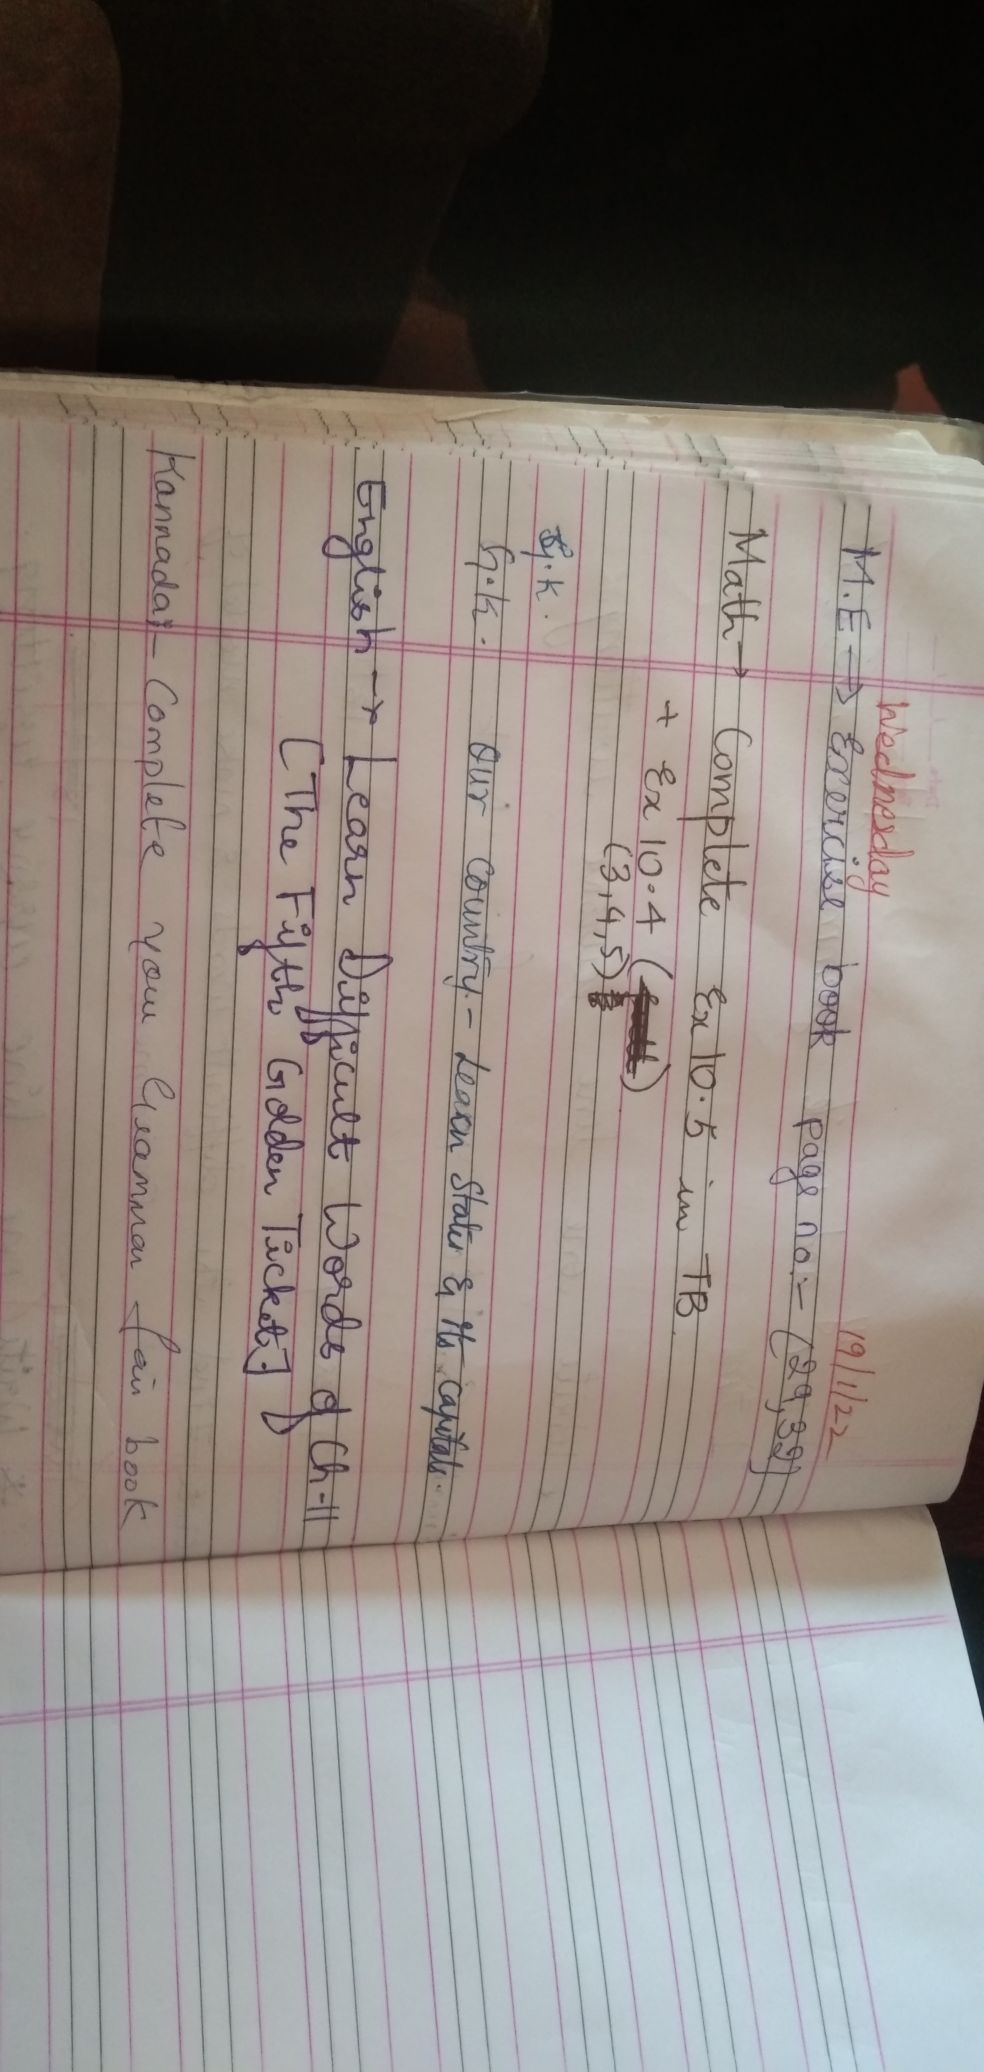 Wednesday 19/1/22
M.E → Exercise book page no:- (29,32)
Math → Complete Ex 10.5 in TB.
+ Ex 10.4 ( )
(3,4,5)
G.K.
G.K. Our Country - Learn States & its capitals.
English → Learn Difficult Words of Ch-11
[The Fifth Golden Ticket]
Kannada:- Complete your Grammar fair book